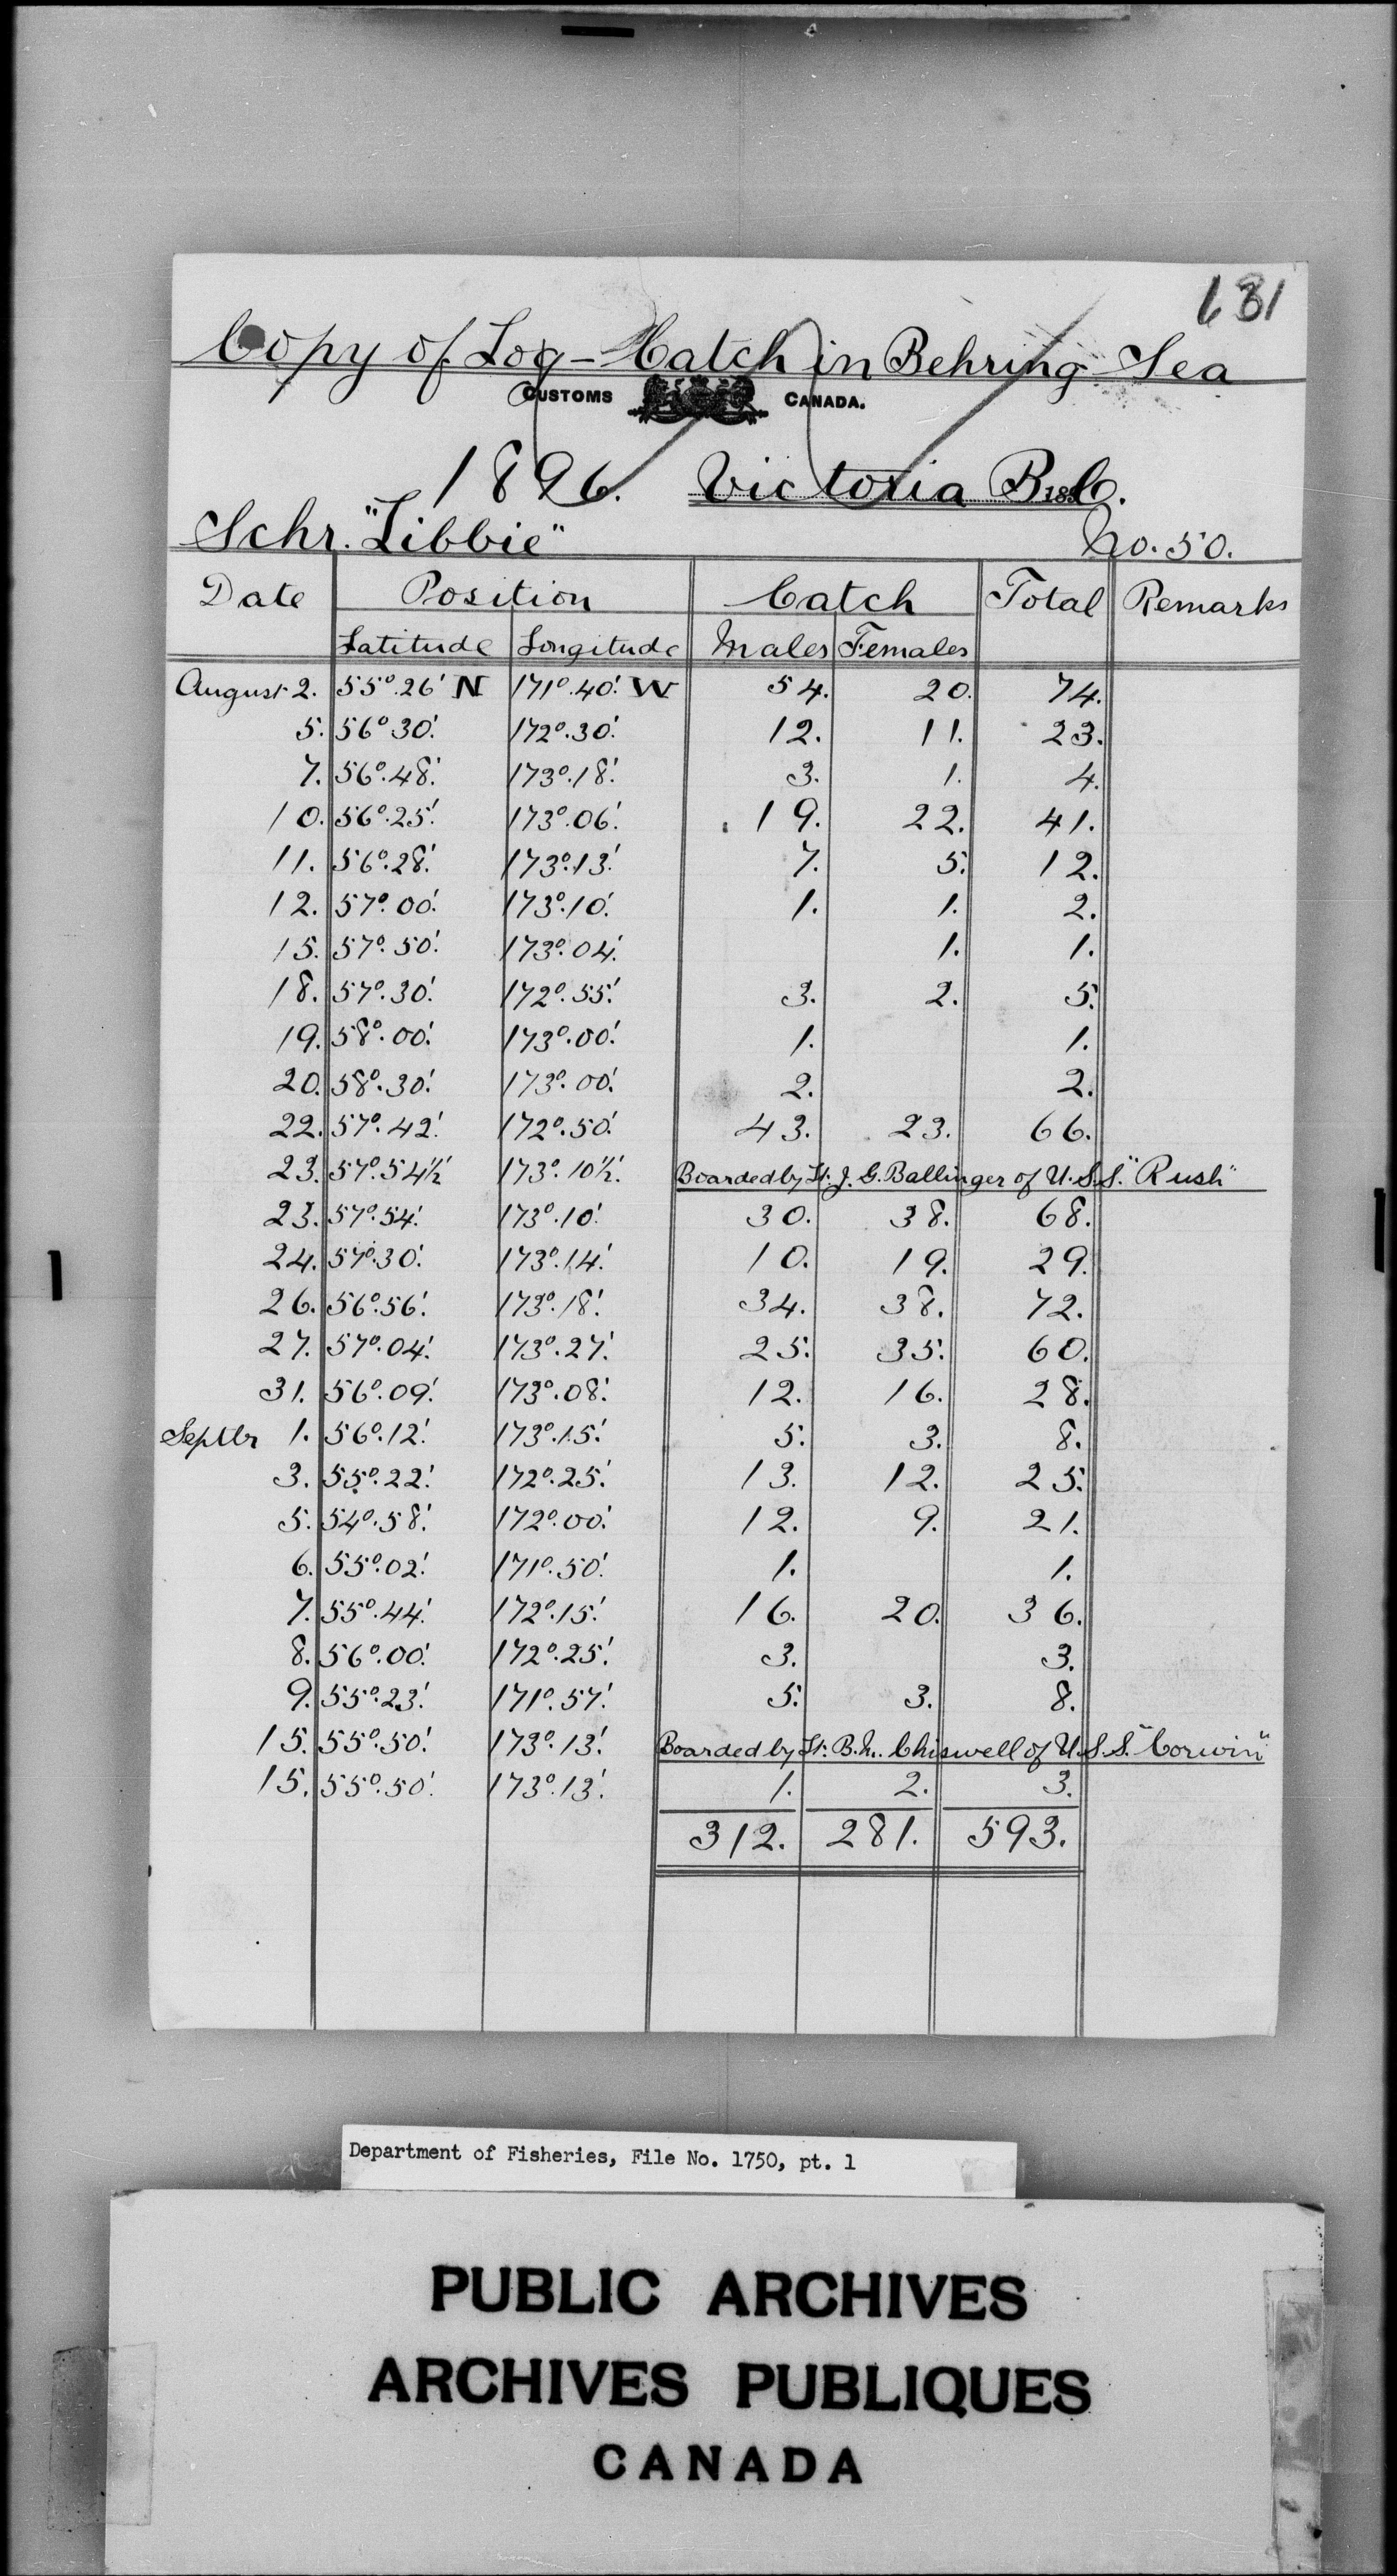 681
Copy of Log - Catch in Behring Sea
CUSTOMS CANADA.
1896. Victoria B.C. 189
Schr. "Libbie" No. 50.
Date Position Catch Total Remarks
Latitude Longitude Males Females
August 2. 55°.26' N 171°.40'. W 54. 20. 74.
5. 56°30'. 172°.30'. 12. 11. 23.
7. 56°.48'. 173°.18'. 3. 1. 4.
10. 56°.25'. 173°.06'. 19. 22. 41.
11. 56°.28'. 173°.13'. 7. 5. 12.
12. 57°.00'. 173°.10'. 1. 1. 2.
15. 57°.50'. 173°.04'. 1. 1.
18. 57°.30'. 172°.55'. 3. 2. 5.
19. 58°.00'. 173°.00'. 1. 1.
20. 58°.30'. 173°.00'. 2. 2.
22. 57°.42'. 172°.50'. 43. 23. 66.
23. 57°.54½' 173°.10½'. Boarded by Lt. J. G. Ballinger of U.S.S. "Rush"
23. 57°.54'. 173°.10'. 30. 38. 68.
24. 57°.30'. 173°.14'. 10. 19. 29.
26. 56°.56'. 173°.18'. 34. 38. 72.
27. 57°.04'. 173°.27'. 25. 35. 60.
31. 56°.09'. 173°.08'. 12. 16. 28.
Septbr 1. 56°.12'. 173°.15'. 5. 3. 8.
3. 55°.22'. 172°.25'. 13. 12. 25.
5. 54°.58'. 172°.00'. 12. 9. 21.
6. 55°.02'. 171°.50'. 1. 1.
7. 55°.44'. 172°.15'. 16. 20. 36.
8. 56°.00'. 172°.25'. 3. 3.
9. 55°.23'. 171°.57'. 5. 3. 8.
15. 55°.50'. 173°.13'. Boarded by Lt. B. M. Chiswell of U.S.S. "Corwin"
15. 55°.50'. 173°.13'. 1. 2. 3.
312. 281. 593.
Department of Fisheries, File No. 1750, pt. 1
PUBLIC ARCHIVES
ARCHIVES PUBLIQUES
CANADA